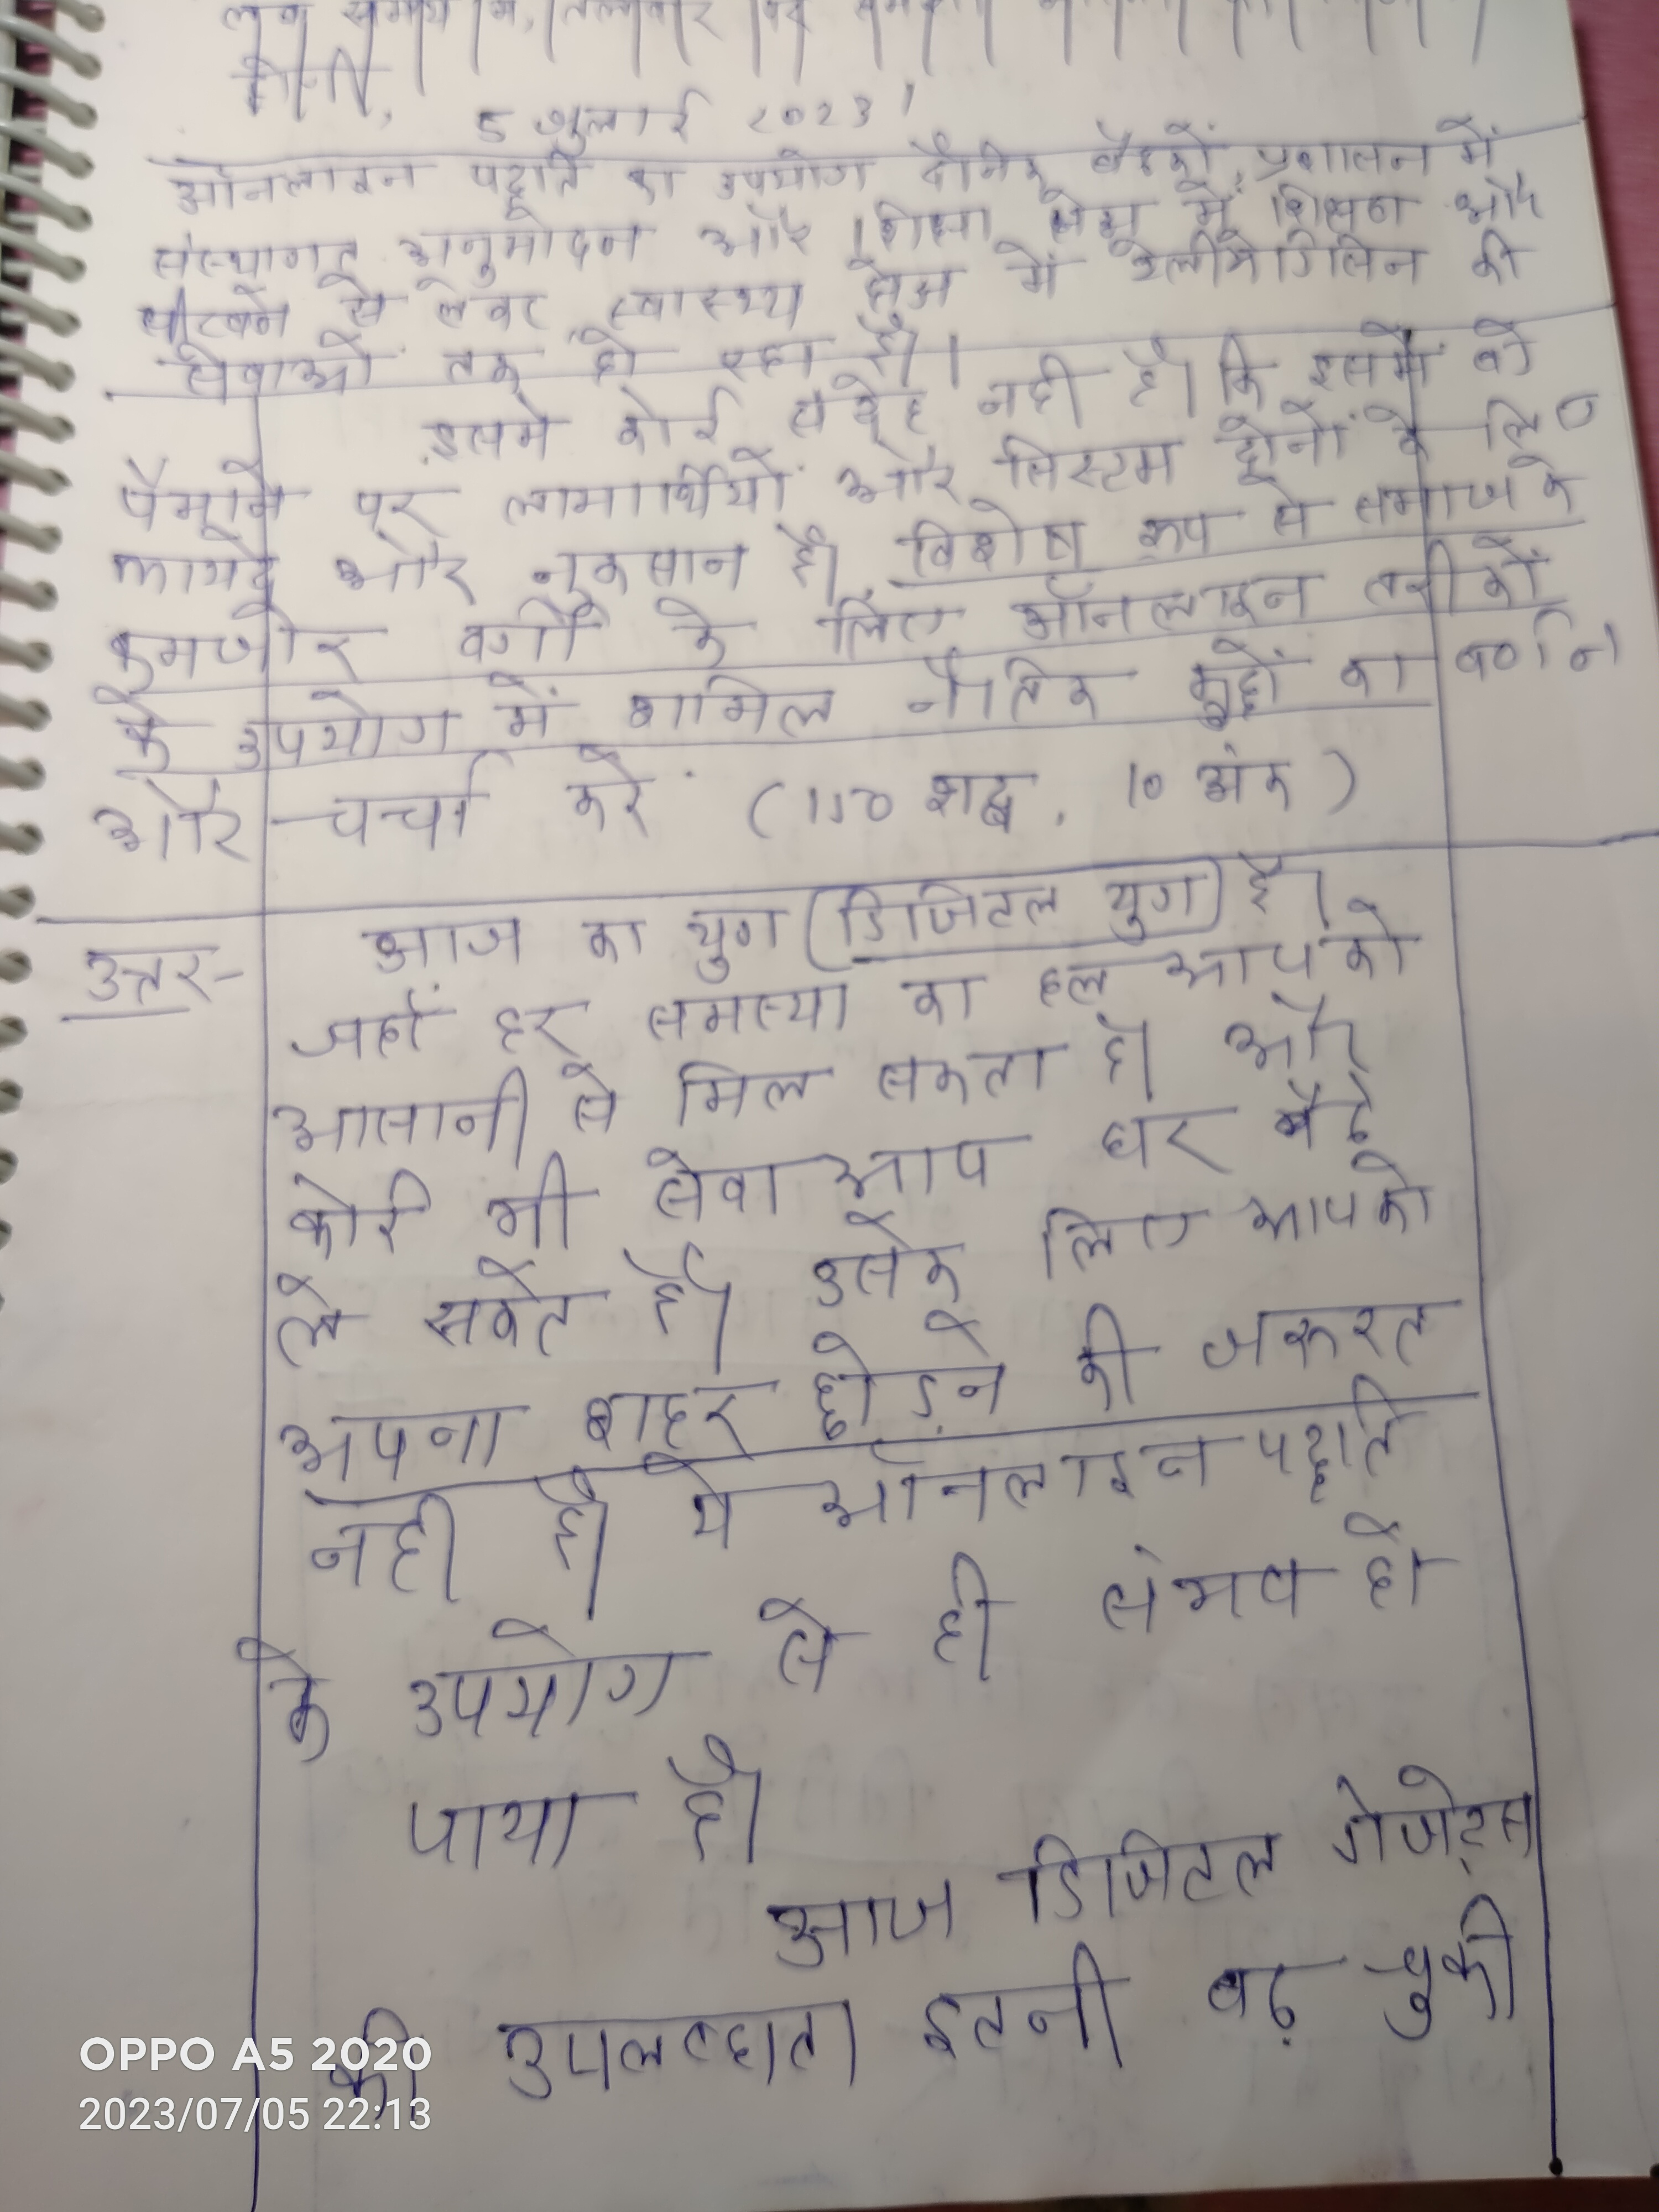 लग समय
5 जुलाई 2023
ऑनलाइन पद्धति का उपयोग दैनिक बैठकों, प्रशासन में
संस्थागत अनुमोदन और शिक्षा क्षेत्र में शिक्षण और
सीखने से लेकर स्वास्थ्य क्षेत्र में टेलीमेडिसिन की
सेवाओं तक हो रहा है।
इसमें कोई संदेह नही है। कि इसमें बडे
पैमाने पर लाभार्थियों और सिस्टम दोनों के लिए
फायदे और नुकसान है। विशेष रूप से समाज के
कमजोर वर्गो के लिए ऑनलाइन तरीकों
के उपयोग में शामिल नैतिक मुद्दों का वर्णन
और चर्चा करें (150 शब्द, 10 अंक)
उत्तर- आज का युग डिजिटल युग है।
जहाँ हर समस्या का हल आपको
आसानी से मिल सकता है। और
कोई भी सेवा आप घर बैठे
ले सकेत है। उसके लिए आपको
अपना शहर छोड़ने की जरूरत
नही है। ये ऑनलाइन पद्धति
के उपयोग से ही संभव हो
पाया है।
आज डिजिटल गेजेट्स
की उपलब्धता इतनी बढ़ चुकी
OPPO A5 2020
2023/07/05 22:13